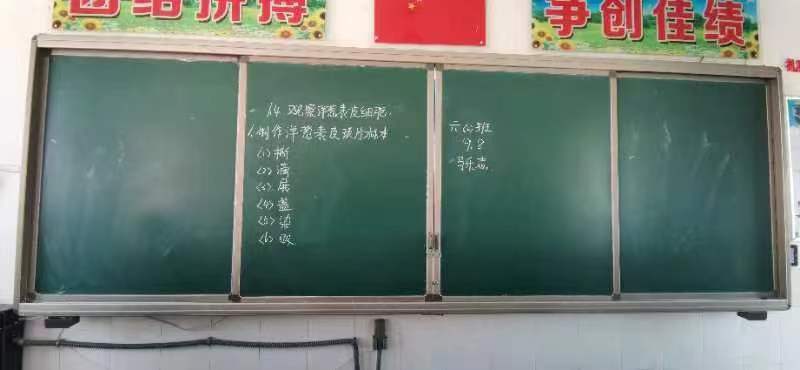 团结拼搏
争创佳绩
1.4 观察洋葱表皮细胞.
1.制作洋葱表皮玻片标本
(1)撕
(2)滴
(3)展
(4)盖
(5)染
(6)吸
六(2)班
9.8